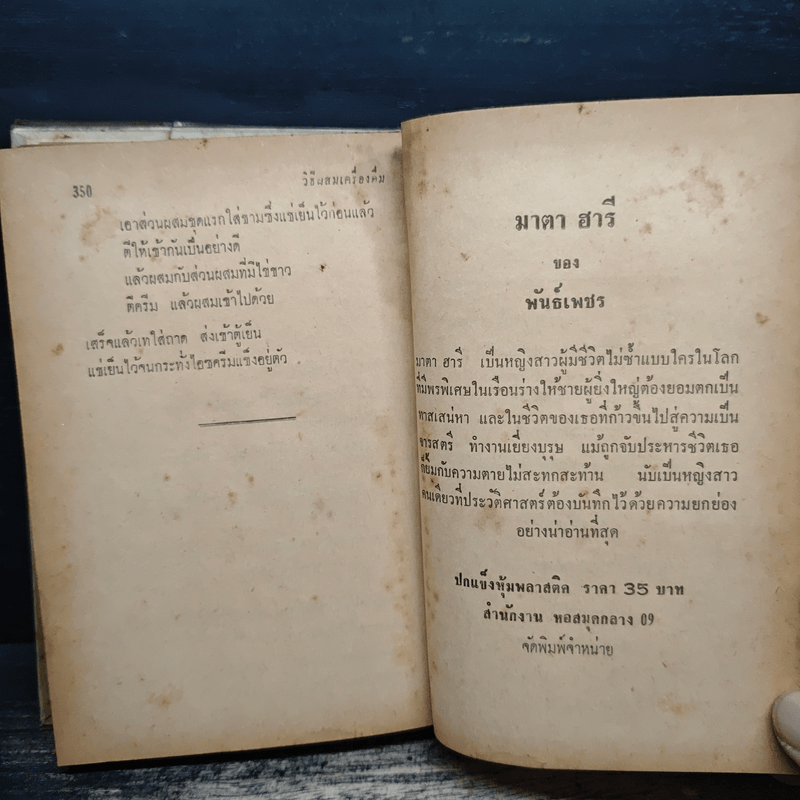 350
วิธีผสมเครื่องดื่ม
เอาส่วนผสมชุดแรกใส่ชามซึ่งแช่เย็นไว้ก่อนแล้ว
ตีให้เข้ากันเป็นอย่างดี
แล้วผสมกับส่วนผสมที่มีไข่ขาว
ตีครีม แล้วผสมเข้าไปด้วย
เสร็จแล้วเทใส่ถาด ส่งเข้าตู้เย็น
แช่เย็นไว้จนกระทั่งไอซครีมแข็งอยู่ตัว
มาตา ฮารี
ของ
พันธ์เพชร
มาตา ฮารี เป็นหญิงสาวผู้มีชีวิตไม่ซ้ำแบบใครในโลก
ที่มีพรพิเศษในเรือนร่างให้ชายผู้ยิ่งใหญ่ต้องยอมตกเป็น
ทาสเสน่หา และในชีวิตของเธอที่ก้าวขึ้นไปสู่ความเป็น
จารสตรี ทำงานเยี่ยงบุรุษ แม้ถูกจับประหารชีวิตเธอ
ก็ยิ้มกับความตายไม่สะทกสะท้าน นับเป็นหญิงสาว
คนเดียวที่ประวัติศาสตร์ต้องบันทึกไว้ด้วยความยกย่อง
อย่างน่าอ่านที่สุด
ปกแข็งหุ้มพลาสติค ราคา 35 บาท
สำนักงาน หอสมุดกลาง 09
จัดพิมพ์จำหน่าย